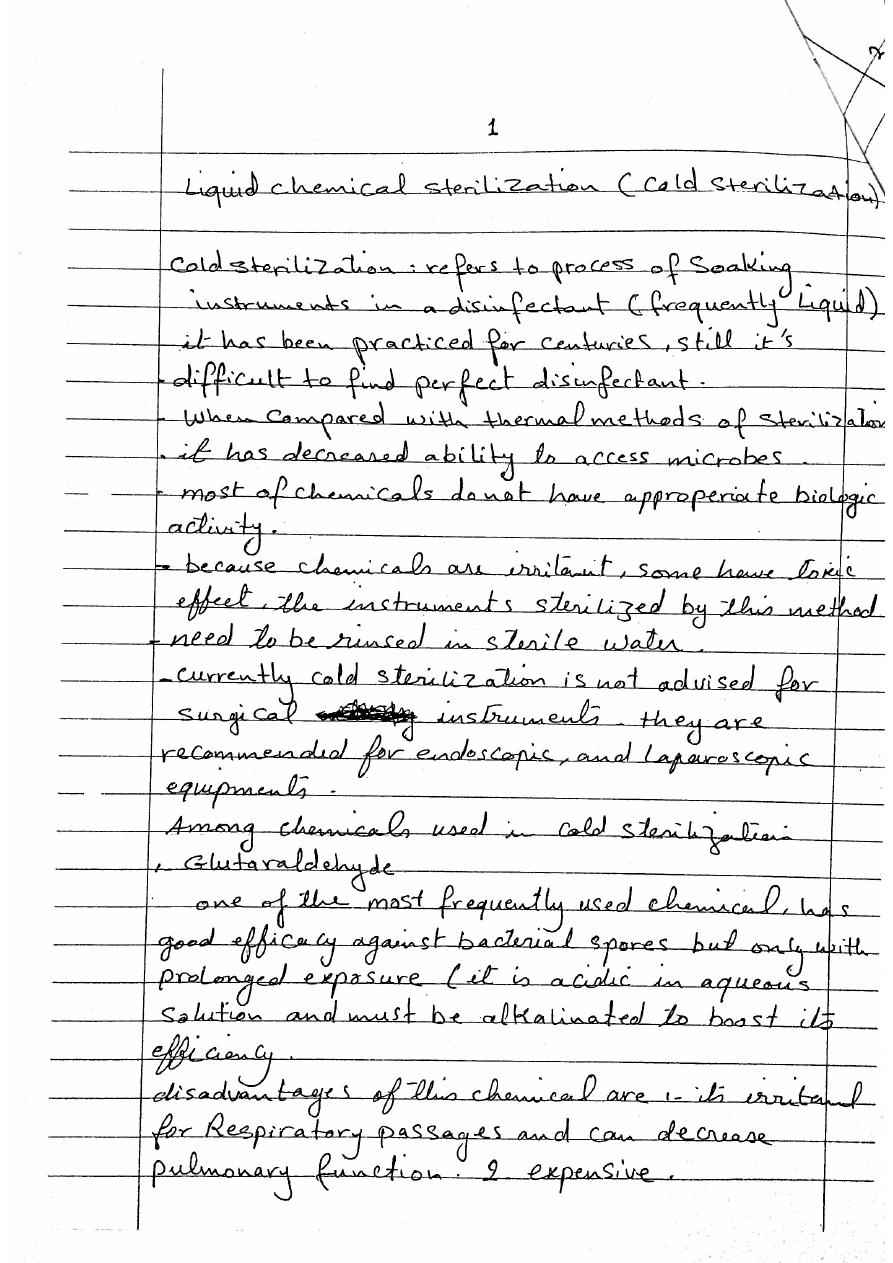 1
Liquid chemical sterilization (Cold sterilization)
Cold sterilization : refers to process of Soaking
instruments in a disinfectant (frequently Liquid)
it has been practiced for centuries, still it's
difficult to find perfect disinfectant.
- When compared with thermal methods of sterilization
. it has decreased ability to access microbes.
- most of chemicals do not have apporperiate biologic
activity.
- because chemicals are irritant, some have toxic
effect, the instruments sterilized by this method
- need to be rinsed in sterile water.
- currently cold sterilization is not advised for
surgical instruments. they are
recommended for endoscopic, and laparoscopic
equipments.
Among chemicals used in cold sterilization:
, Glutaraldehyde
one of the most frequently used chemical, has
good efficacy against bacterial spores but only with
prolonged exposure (it is acidic in aqueous
solution and must be alkalinated to boost its
efficiency.
disadvantages of this chemical are 1- its irritant
for Respiratory passages and can decrease
pulmonary function. 2 expensive.